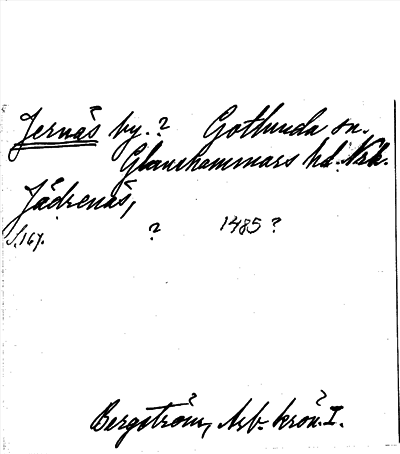 Jernäs by. ? Gotlunda sn.
Glanshammars hd. Nrk.
Jädrenäs,
S. 167. ? 1485 ?
Bergström, Arb. krön. I.